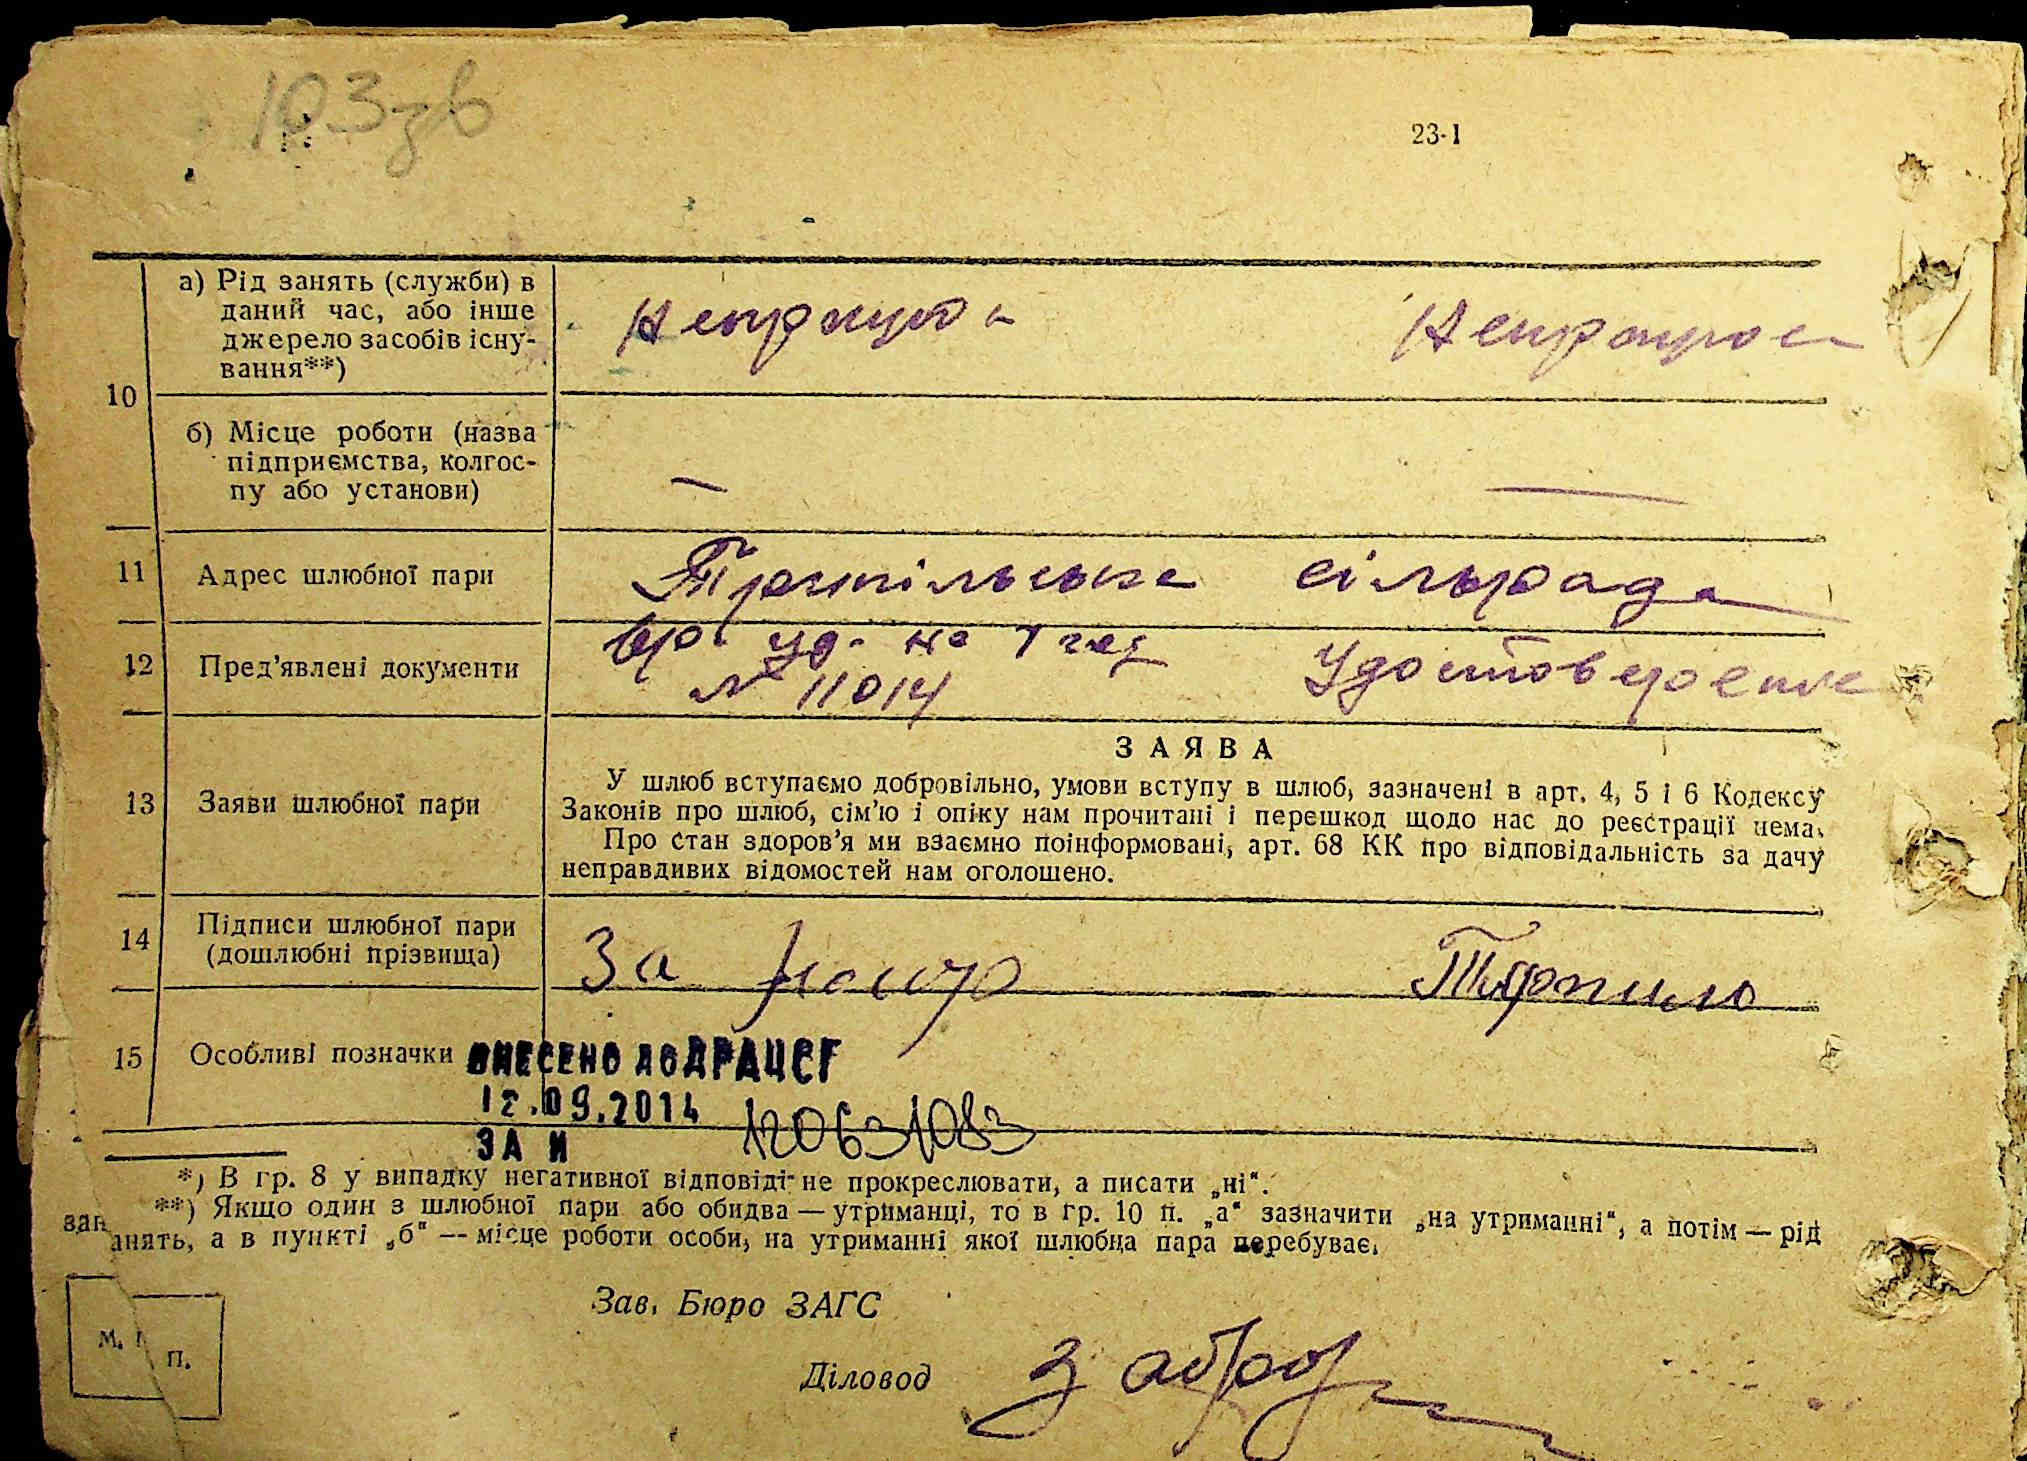 103 зв
23-1
10
а) Рід занять (служби) в
даний час, або інше
джерело засобів існу-
вання**)
б) Місце роботи (назва
підприємства, колгос-
пу або установи)
— —
11 Адрес шлюбної пари сільрада
12 Пред'явлені документи вр. уд. на 1 год
№ 11014
13 Заяви шлюбної пари
ЗАЯВА
У шлюб вступаємо добровільно, умови вступу в шлюб, зазначені в арт. 4, 5 і 6 Кодексу
Законів про шлюб, сім'ю і опіку нам прочитані і перешкод щодо нас до реєстрації нема.
Про стан здоров'я ми взаємно поінформовані, арт. 68 КК про відповідальність за дачу
неправдивих відомостей нам оголошено.
14 Підписи шлюбної пари
(дошлюбні прізвища)
За
15 Особливі позначки ВНЕСЕНО ДО ДРАЦСГ
12.09.2014
ЗА № 120631083
*) В гр. 8 у випадку негативної відповіді не прокреслювати, а писати „ні“.
**) Якщо один з шлюбної пари або обидва — утриманці, то в гр. 10 п. „а“ зазначити „на утриманні“, а потім — рід
занять, а в пункті „б“ — місце роботи особи, на утриманні якої шлюбна пара перебуває.
Зав. Бюро ЗАГС
М. П.
Діловод